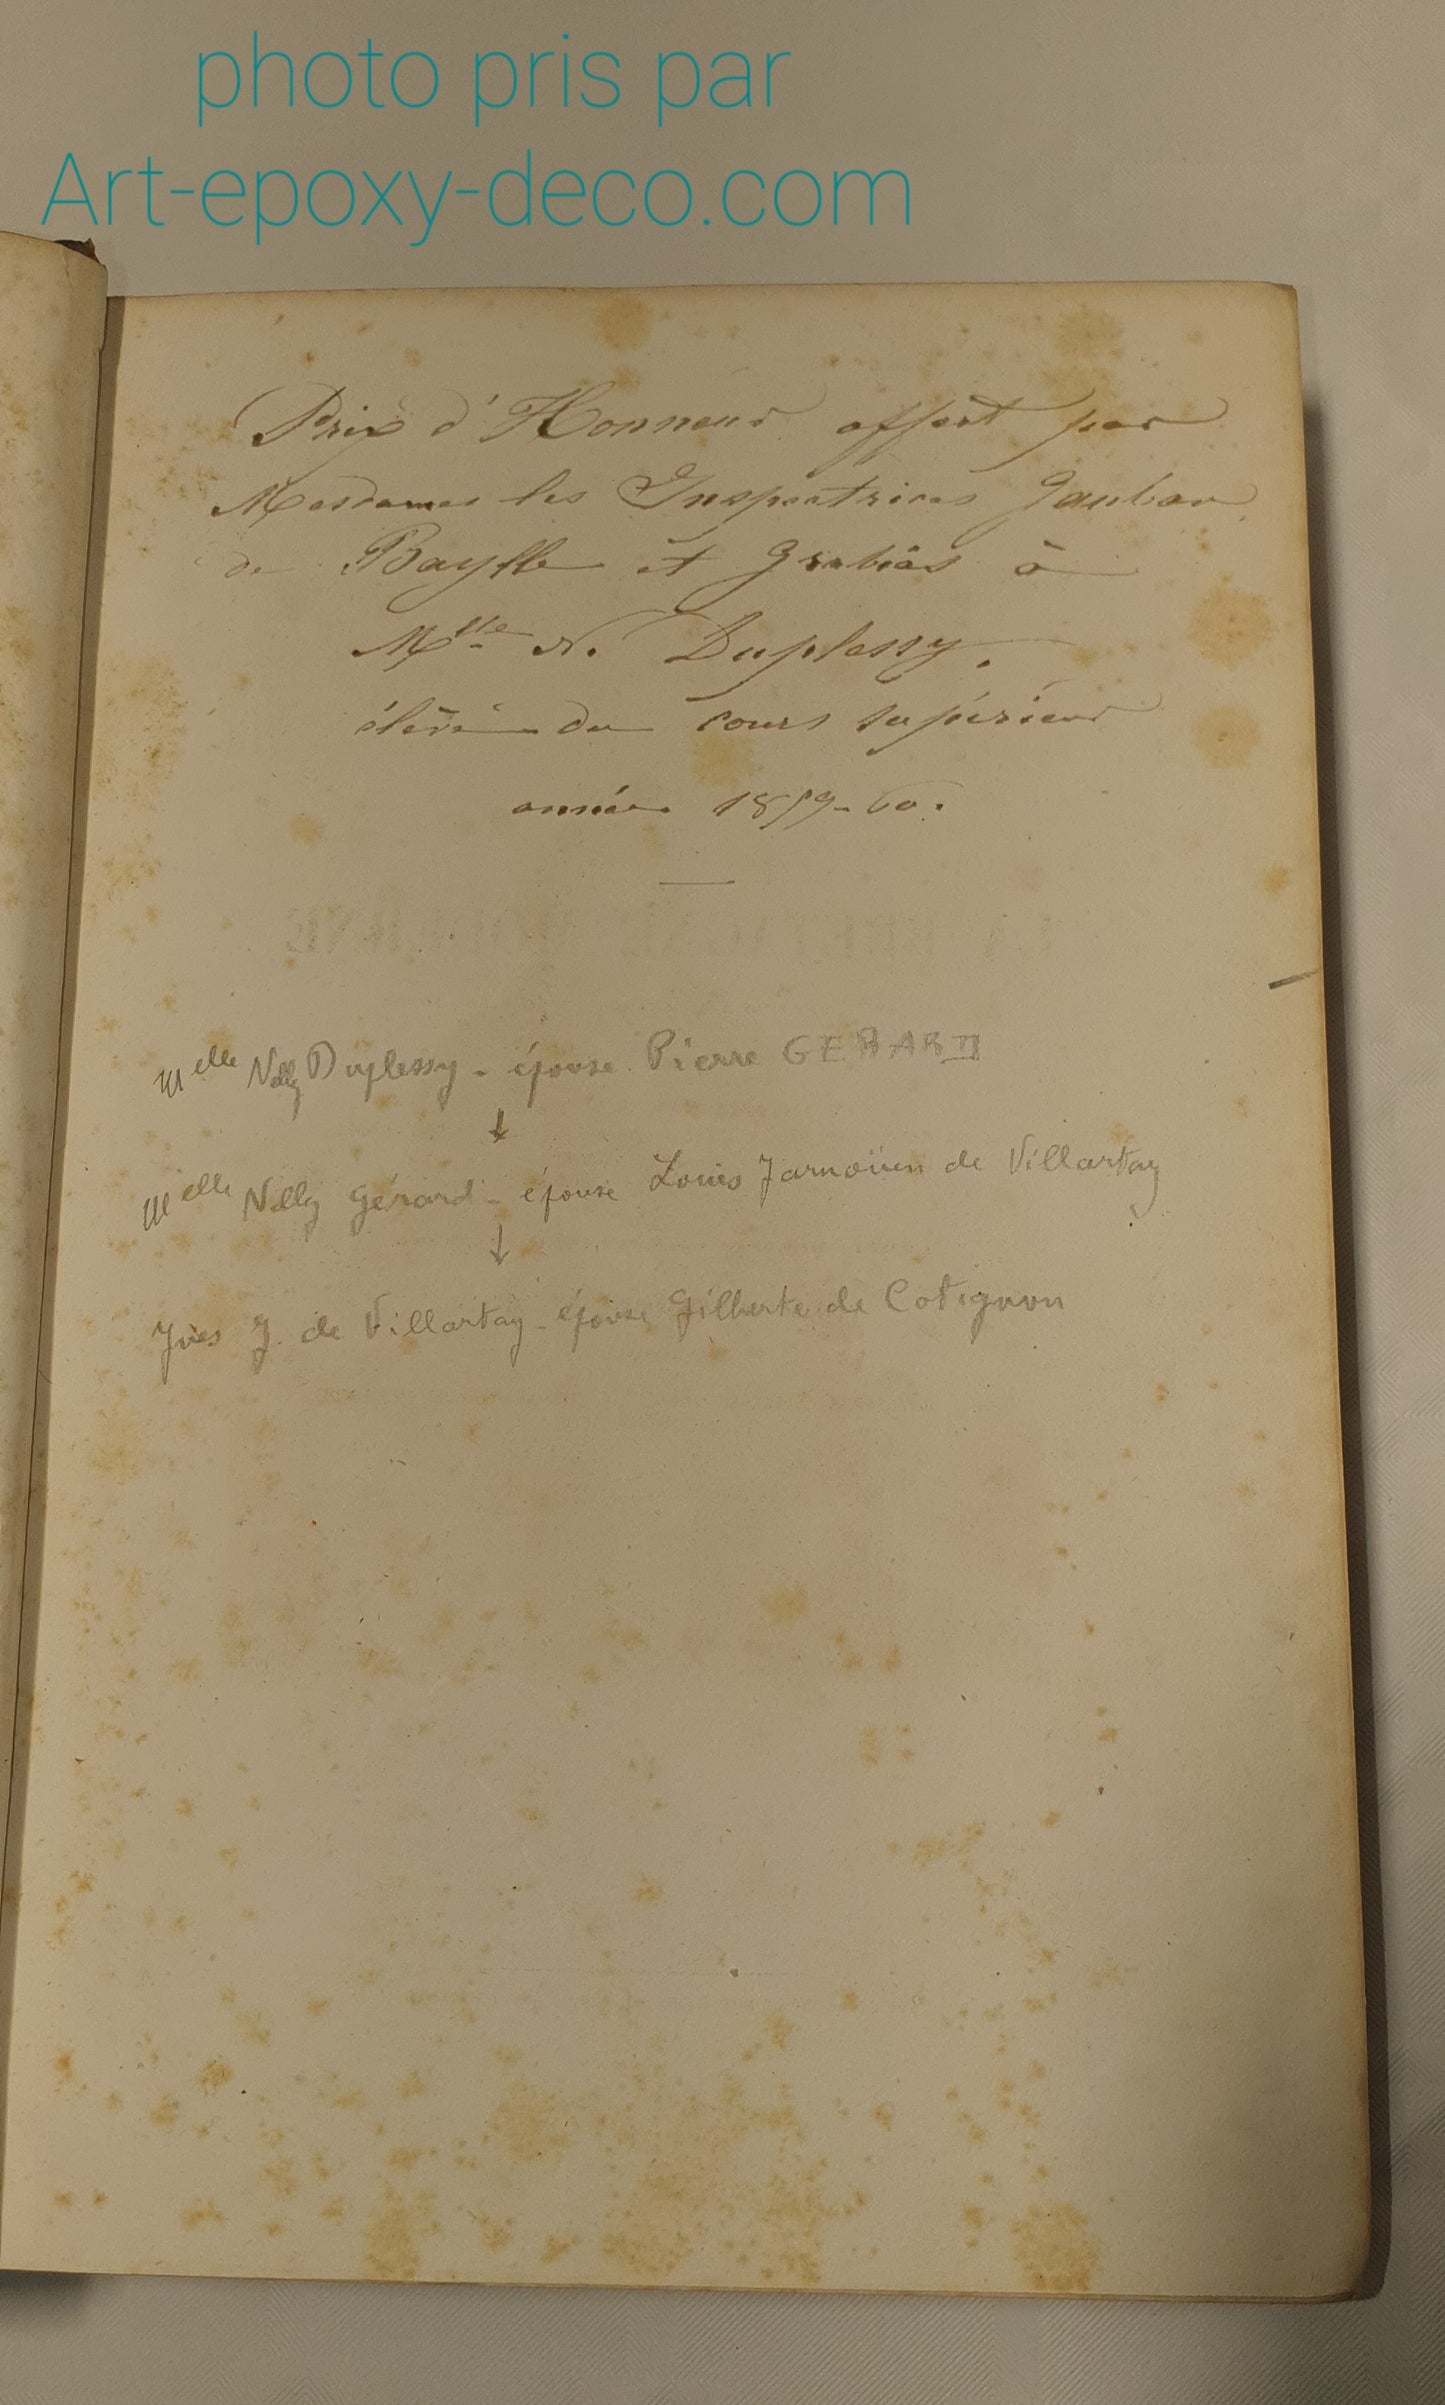 photo pris par
Art-epoxy-deco.com
Prix d'Honneur offert par
Mesdames les Inspectrices
de et à
Mlle N. Duplessy.
élève du cours supérieur
année 1859-60.
Melle Nelly Duplessy - épouse Pierre GERARD
↓
Melle Nelly Gérard - épouse Louis Jarnoüen de Villartay
↓
Yves J. de Villartay - épouse Gilberte de Cotignon